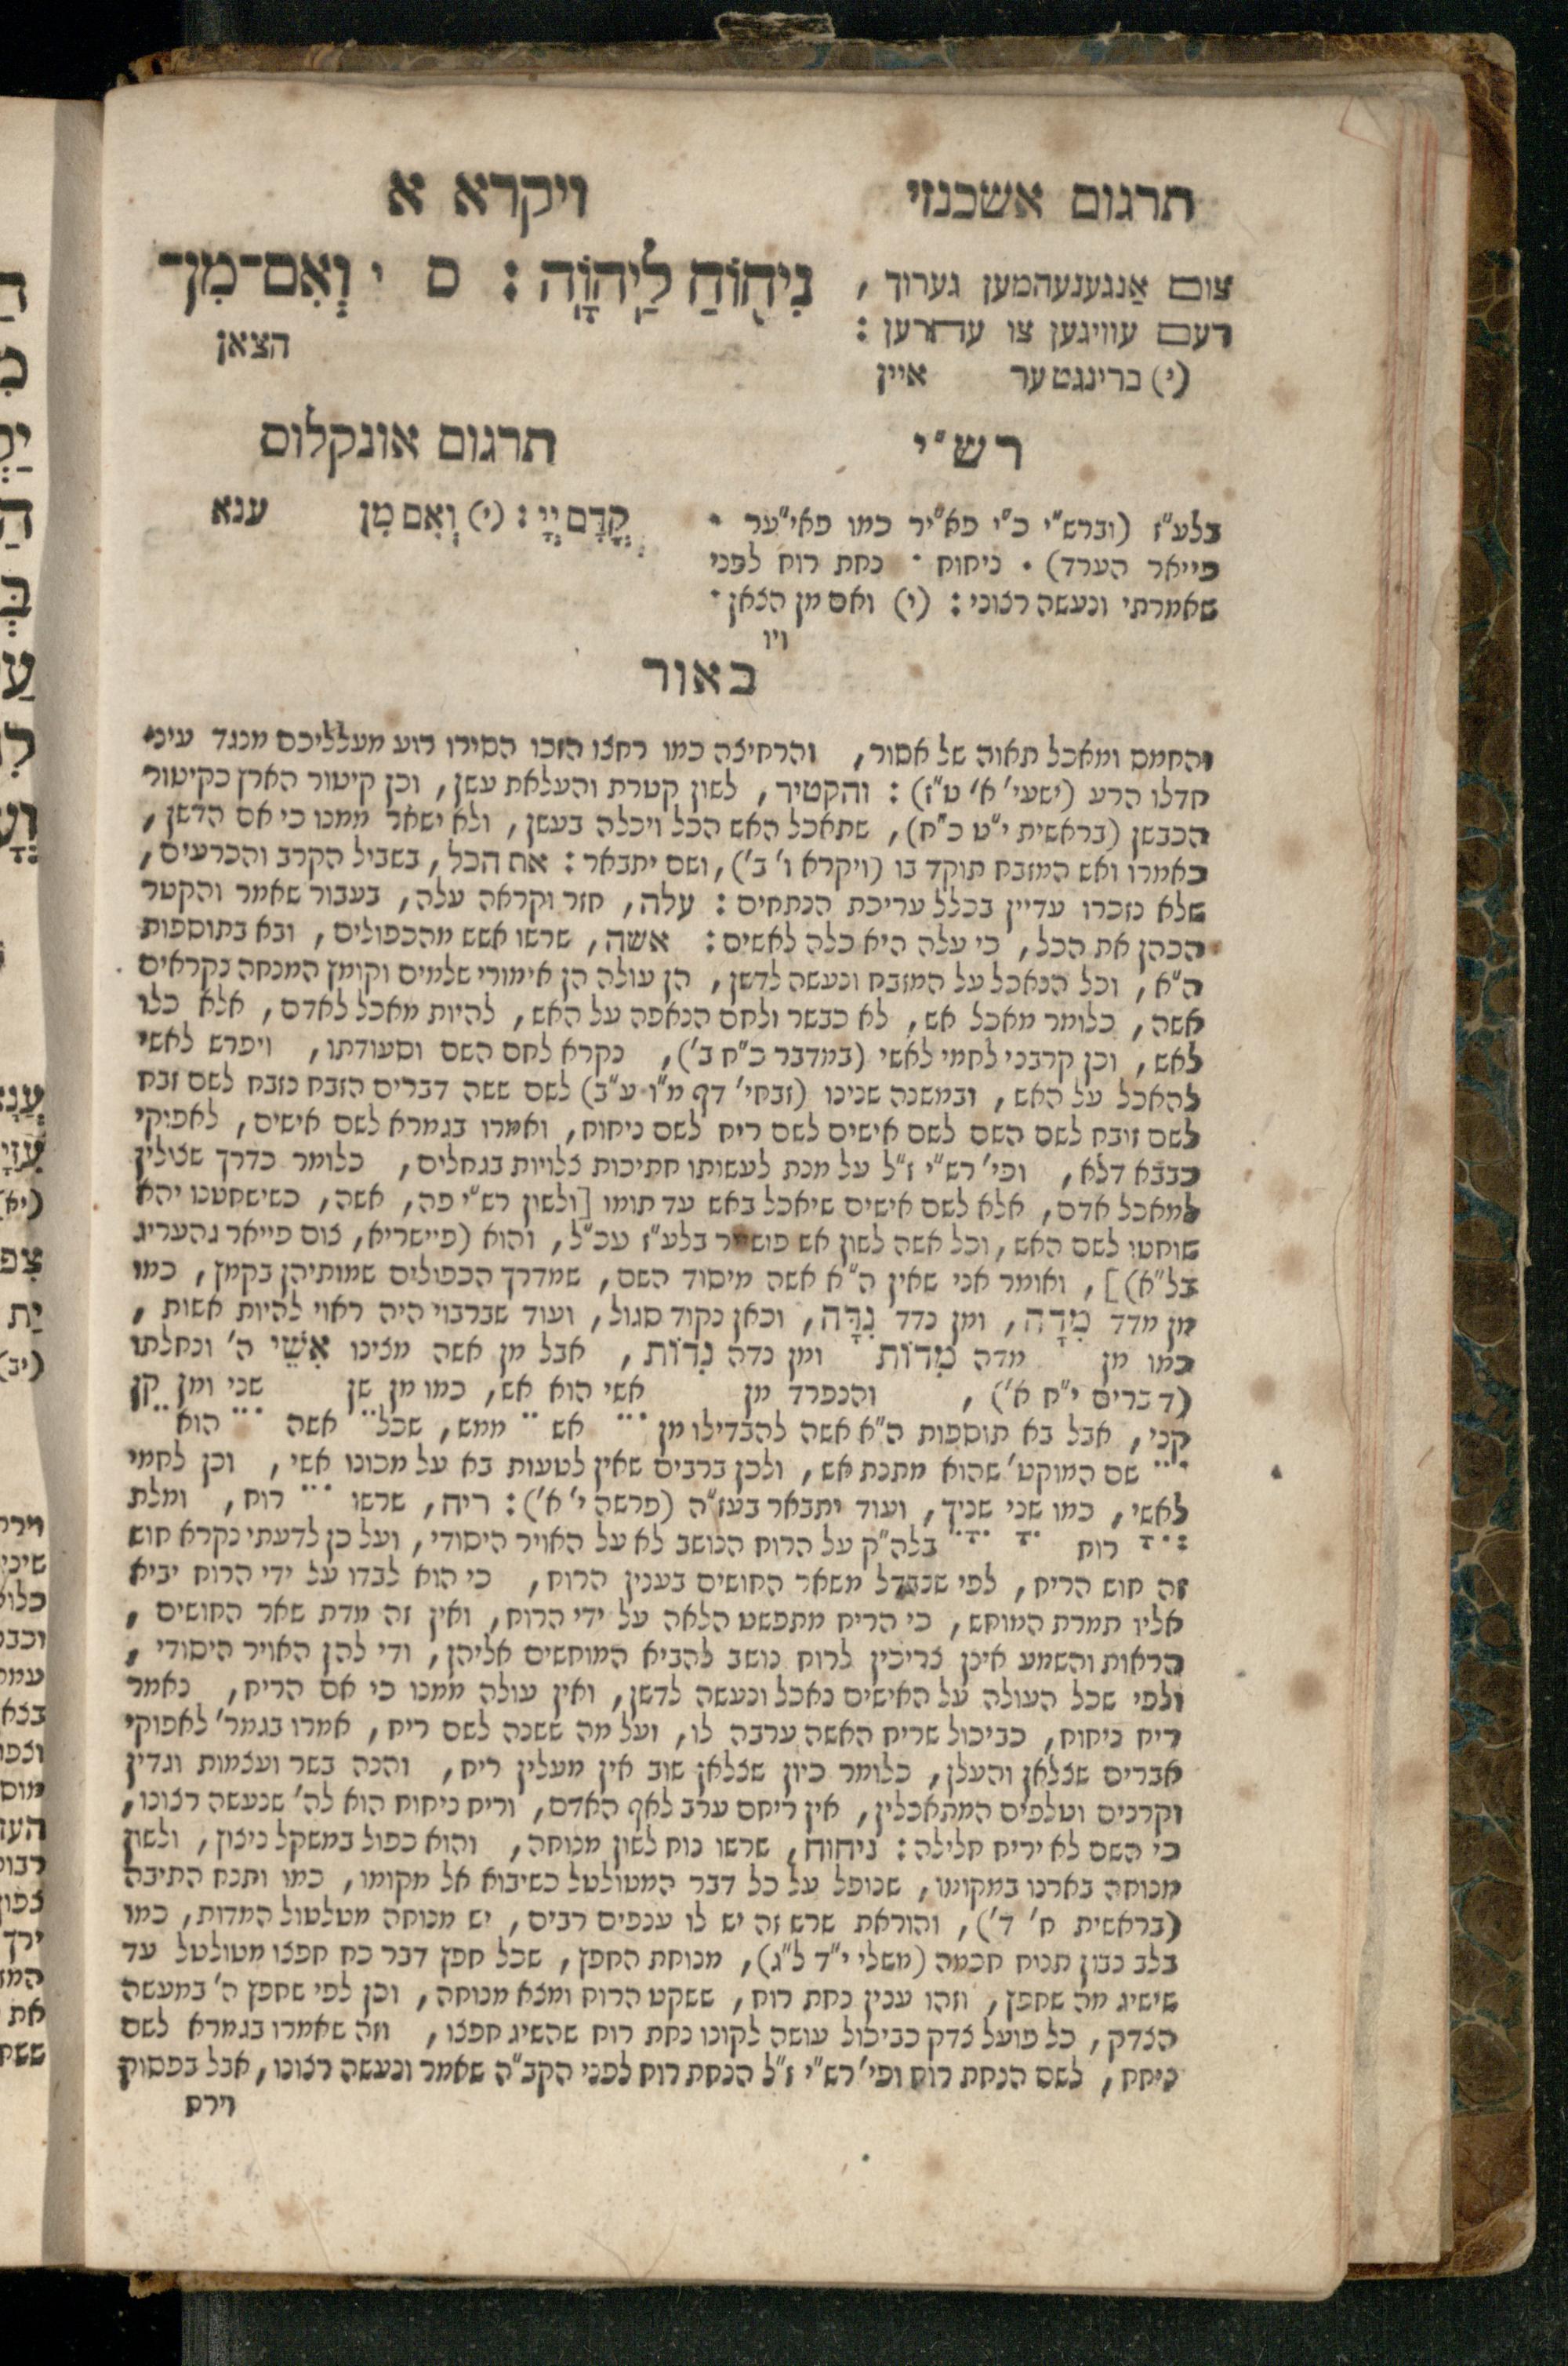 תרגום אשכנזי
ויקרא א
צום אַנגענעהמען גערוך,
דעם עוויגען צו עהרען:
(י) ברינגט ער איין
נִיחֹוחַ לַיהוָה: ס י וְאִם־מִן־
הצאן
רש"י
בלע"ז (וברש"י כ"י פא"יר כמו פאי"ער ·
פייאר הערד) · ניחוח · נחת רוח לפני
שאמרתי ונעשה רצוני: (י) ואם מן הצאן ·
ויו
תרגום אונקלוס
קֳדָם יְיָ: (י) וְאִם מִן ענא
באור
והחמס ומאכל תאוה של אסור, והרחיצה כמו רחצו הזכו הסירו רוע מעלליכם מנגד עיני
חדלו הרע (ישעי' א' ט"ז): והקטיר, לשון קטרת והעלאת עשן, וכן קיטור הארץ כקיטור
הכבשן (בראשית י"ט כ"ח), שתאכל האש הכל ויכלה בעשן, ולא ישאר ממנו כי אם הדשן,
כאמרו ואש המזבח תוקד בו (ויקרא ו' ב'), ושם יתבאר: את הכל, בשביל הקרב והכרעים,
שלא נזכרו עדיין בכלל עריכת הנתחים: עלה, חזר וקראה עלה, בעבור שאמר והקטר
הכהן את הכל, כי עלה היא כלה לאשים: אשה, שרשו אשש מהכפולים, ובא בתוספות
ה"א, וכל הנאכל על המזבח ונעשה לדשן, הן עולה הן אימורי שלמים וקומץ המנחה נקראים
אשה, כלומר מאכל אש, לא כבשר ולחם הנאפה על האש, להיות מאכל לאדם, אלא כלו
לאש, וכן קרבני לחמי לאשי (במדבר כ"ח ב'), נקרא לחם השם וסעודתו, ויפרש לאשי
להאכל על האש, ובמשנה שנינו (זבחי' דף מ"ו ע"ב) לשם ששה דברים הזבח נזבח לשם זבח
לשם זובח לשם השם לשם אישים לשם ריח לשם ניחוח, ואמרו בגמרא לשם אישים, לאפוקי
כבבא דלא, ופי' רש"י ז"ל על מנת לעשותו חתיכות צלויות בגחלים, כלומר כדרך שצולין
למאכל אדם, אלא לשם אישים שיאכל באש עד תומו [ולשון רש"י פה, אשה, כשישחטנו יהא
שוחטו לשם האש, וכל אשה לשון אש בלע"ז עכ"ל, והוא (פיישריא, צום פייאר געהעריג
בל"א)], ואומר אני שאין ה"א אשה מיסוד השם, שמדרך הכפולים שמותיהן בקמץ, כמו
מן מדד מִדָה, ומן נדד נִדָּה, וכאן נקוד סגול, ועוד שברבוי היה ראוי להיות אשות,
כמו מן מדה מִדוֹת ומן נדה נִדוֹת, אבל מן אשה מצינו אִשֵׁי ה' ונחלתו
(דברים י"ח א'), והנפרד מן אשי הוא אש, כמו מן שן שני ומן קן
קני, אבל בא תוספות ה"א אשה להבדילו מן אש ממש, שכל אשה הוא
שם המוקט' שהוא מתנת אש, ולכן ברבים שאין לטעות בא על מכונו אשי, וכן לחמי
לאשי, כמו שני שניך, ועוד יתבאר בעז"ה (פרשה י' א'): ריח, שרשו רוח, ומלת
רוח בלה"ק על הרוח הנושב לא על האויר היסודי, ועל כן לדעתי נקרא חוש
זה חוש הריח, לפי שנבדל משאר החושים בענין הרוח, כי הוא לבדו על ידי הרוח יביא
אליו תמרת המוחש, כי הריח מתפשט הלאה על ידי הרוח, ואין זה מדת שאר החושים,
הראות והשמע אינן צריכין לרוח נושב להביא המוחשים אליהן, ודי להן האויר היסודי,
ולפי שכל העולה על האישים נאכל ונעשה לדשן, ואין עולה ממנו כי אם הריח, נאמר
ריח ניחוח, כביכול שריח האשה ערבה לו, ועל מה ששנה לשם ריח, אמרו בגמר' לאפוקי
אברים שצלאן והעלן, כלומר כיון שצלאן שוב אין מעלין ריח, והנה בשר ועצמות וגדין
וקרנים וטלפים המתאכלין, אין ריחם ערב לאף האדם, וריח ניחוח הוא לה' שנעשה רצונו,
כי השם לא יריח חלילה: ניחוח, שרשו נוח לשון מנוחה, והוא כפול במשקל ניצוץ, ולשון
מנוחה בארנו במקומו, שנופל על כל דבר המטולטל כשיבוא אל מקומו, כמו ותנח התיבה
(בראשית ח' ד'), והוראת שרש זה יש לו ענפים רבים, יש מנוחה מטלטול המדות, כמו
בלב נבון תנוח חכמה (משלי י"ד ל"ג), מנוחת החפץ, שכל חפץ דבר נח חפצו מטולטל עד
שישיג מה שחפץ, וזהו ענין נחת רוח, ששקט הרוח ומצא מנוחה, וכן לפי שחפץ ה' במעשה
הצדק, כל פועל צדק כביכול עושה לקונו נחת רוח שהשיג חפצו, וזה שאמרו בגמרא לשם
ניחח, לשם הנחת רוח ופי' רש"י ז"ל הנחת רוח לפני הקב"ה שאמר ונעשה רצונו, אבל בפסוק
וירח